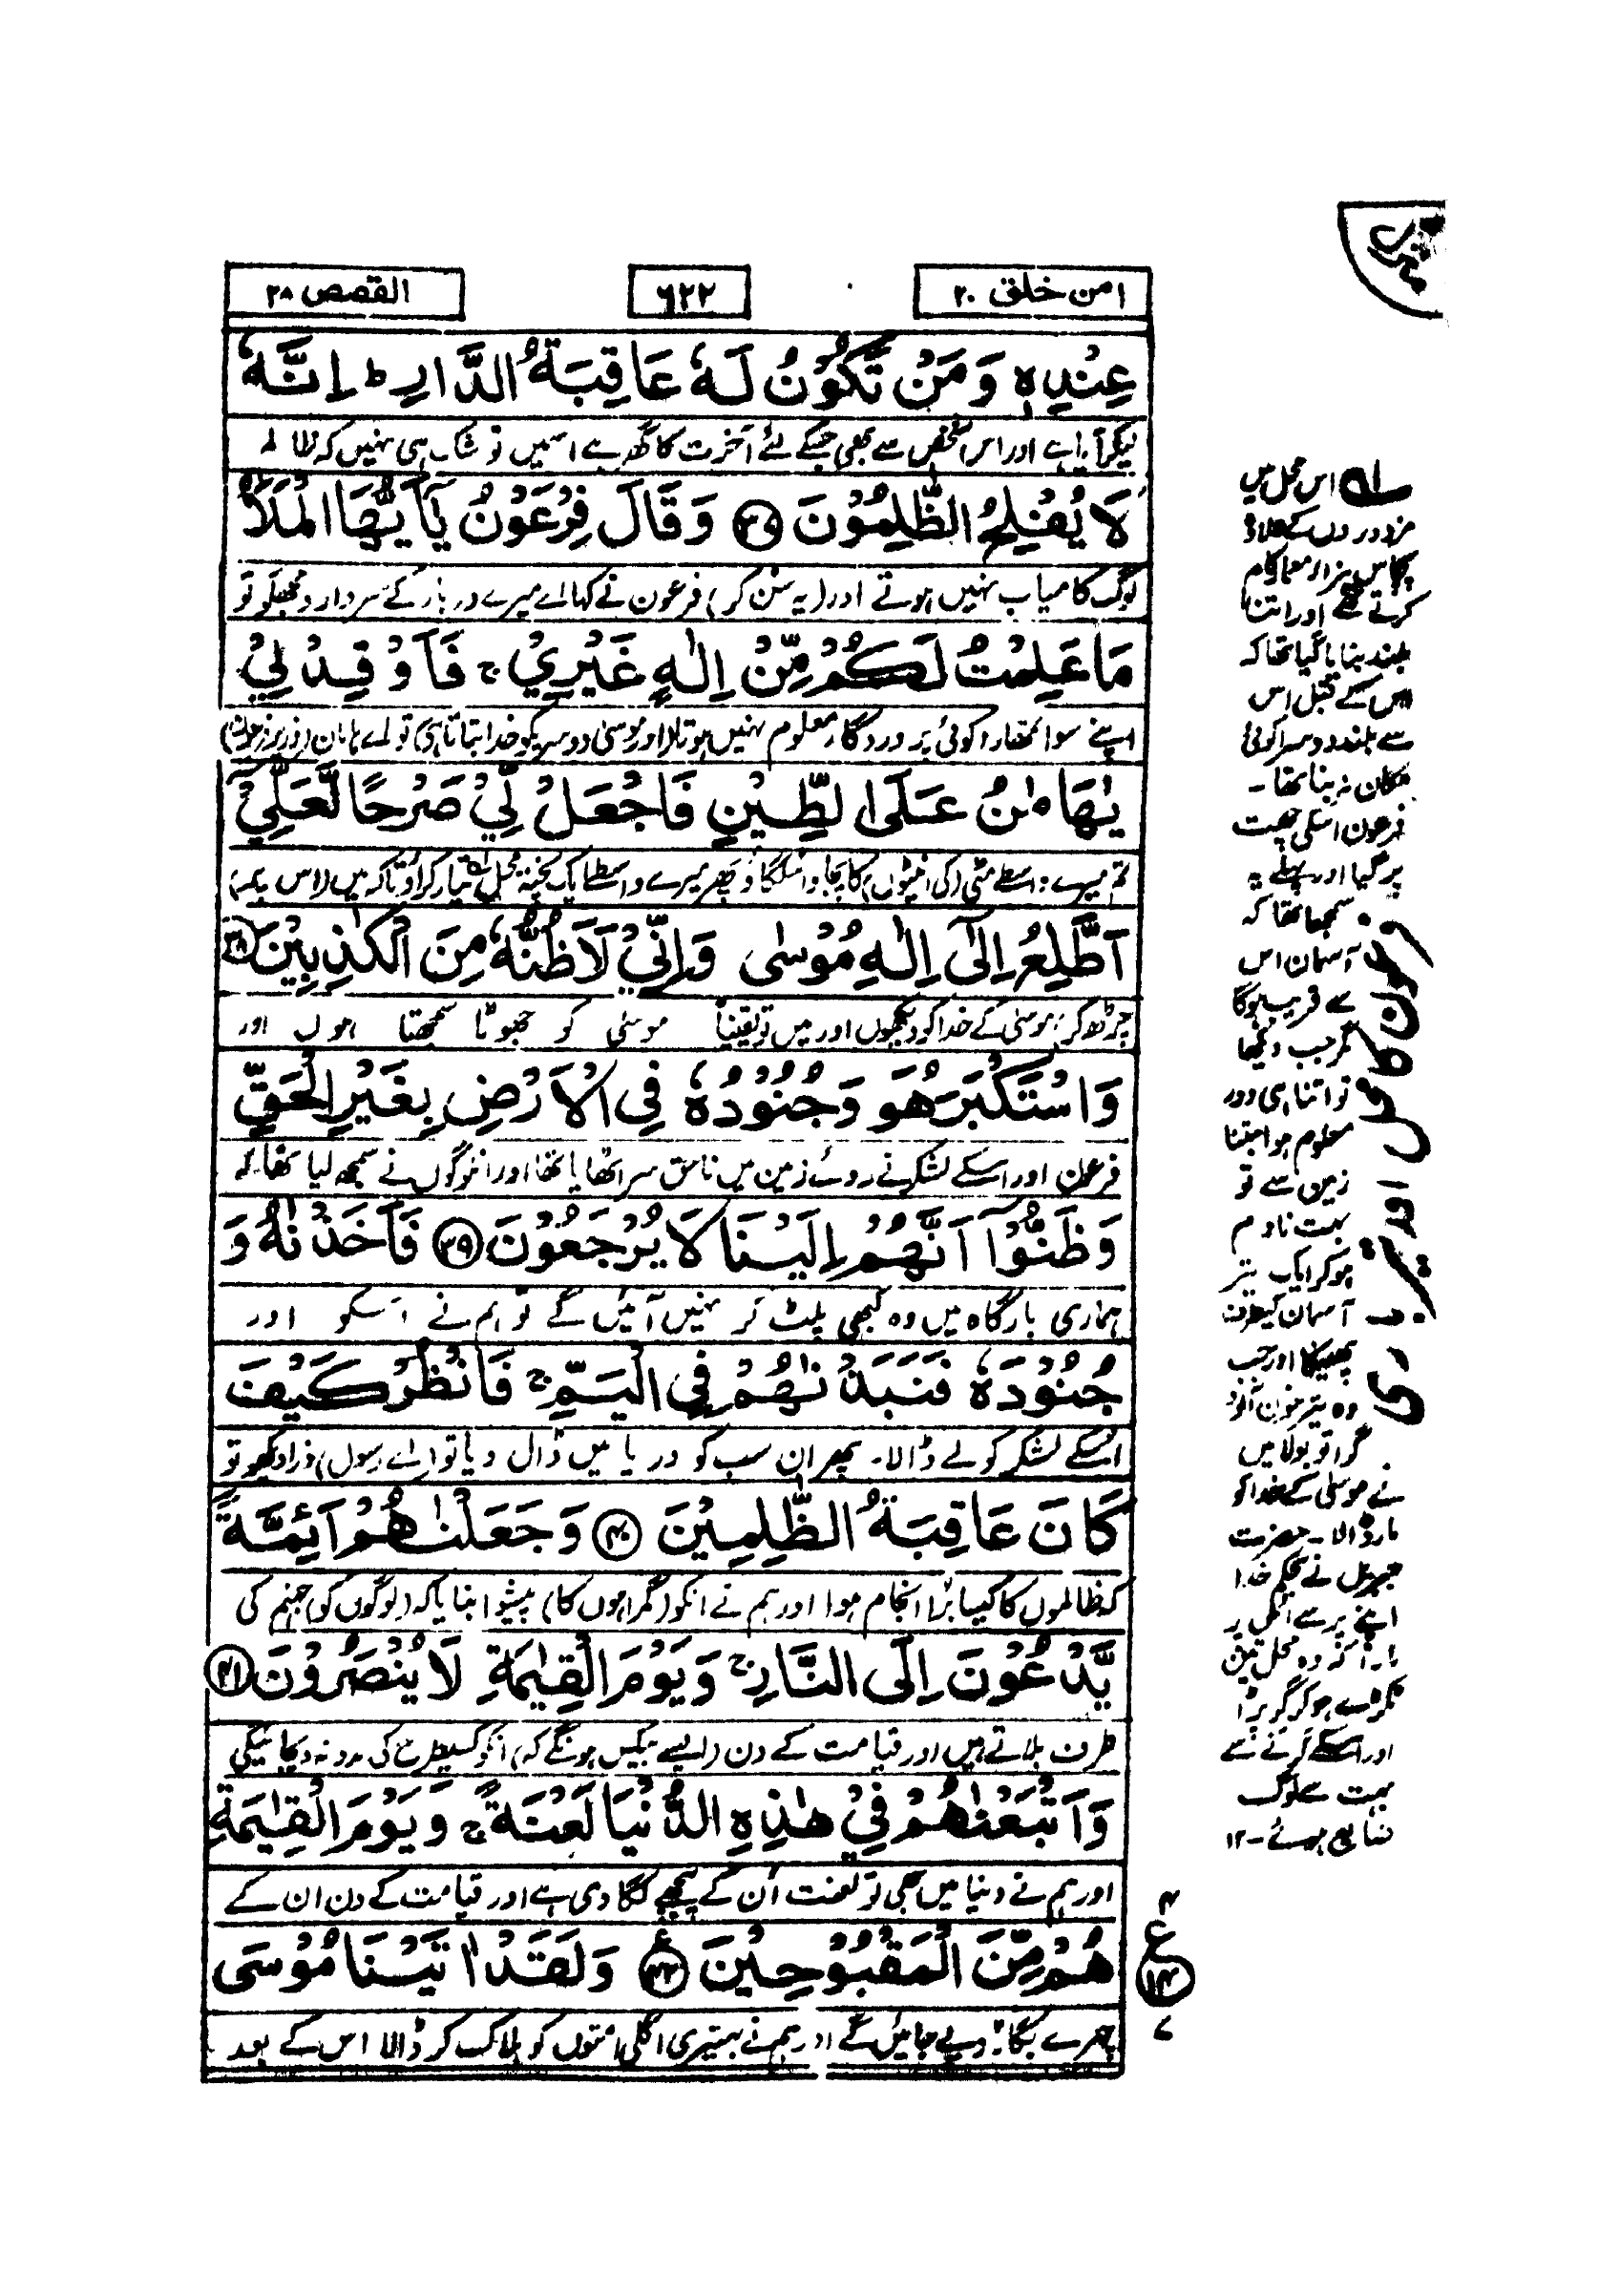 امن خلق ۲۰
۶۲۲
القصص ۲۸
منزل
عِنْدِهٖ وَمَنْ تَكُوْنُ لَهٗ عَاقِبَةُ الدَّارِ ط اِنَّهٗ
لیکر آیا ہے اور اس شخص سے بھی جسکے لئے آخرت کا گھر ہے اسمیں تو شک ہی نہیں کہ ظالم
لَا يُفْلِحُ الظّٰلِمُوْنَ ۳۷ وَقَالَ فِرْعَوْنُ يٰٓاَيُّهَا الْمَلَاُ
لوگ کامیاب نہیں ہوتے اور (یہ سن کر) فرعون نے کہا اے میرے دربار کے سردارو مجھکو تو
مَا عَلِمْتُ لَكُمْ مِّنْ اِلٰهٍ غَيْرِيْ ج فَاَوْقِدْ لِيْ
اپنے سوا تمھارا کوئی پروردگار معلوم نہیں ہوتا (اور موسیٰ دوسرے کو خدا بتاتا ہے) تو اے ہامان (وزیر فرعون)
يٰهَامٰنُ عَلَى الطِّيْنِ فَاجْعَلْ لِّيْ صَرْحًا لَّعَلِّيْٓ
تم میرے واسطے مٹی (کی اینٹوں) کا پجاوا سلگاؤ پھر میرے واسطے ایک پختہ محل تیار کراؤ تاکہ میں (اس پر
اَطَّلِعُ اِلٰٓى اِلٰهِ مُوْسٰى وَاِنِّيْ لَاَظُنُّهٗ مِنَ الْكٰذِبِيْنَ ۳۸
چڑھ کر) موسیٰ کے خدا کو دیکھوں اور میں تو یقیناً موسیٰ کو جھوٹا سمجھتا ہوں اور
وَاسْتَكْبَرَ هُوَ وَجُنُوْدُهٗ فِي الْاَرْضِ بِغَيْرِ الْحَقِّ
فرعون اور اسکے لشکر نے روئے زمین میں ناحق سر اٹھایا تھا اور ان لوگوں نے سمجھ لیا تھا کہ
وَظَنُّوْٓا اَنَّهُمْ اِلَيْنَا لَا يُرْجَعُوْنَ ۳۹ فَاَخَذْنٰهُ وَ
ہماری بارگاہ میں وہ کبھی پلٹ کر نہیں آئیں گے تو ہم نے اسکو اور
جُنُوْدَهٗ فَنَبَذْنٰهُمْ فِي الْيَمِّ ج فَانْظُرْ كَيْفَ
اسکے لشکر کو لے ڈالا۔ پھر ان سب کو دریا میں ڈال دیا تو (اے رسول) ذرا دیکھو تو
كَانَ عَاقِبَةُ الظّٰلِمِيْنَ ۴۰ وَجَعَلْنٰهُمْ اَئِمَّةً
کہ ظالموں کا کیسا بُرا انجام ہوا اور ہم نے انکو (گمراہوں کا) پیشوا بنایا کہ (لوگوں کو) جہنم کی
يَّدْعُوْنَ اِلَى النَّارِ ج وَيَوْمَ الْقِيٰمَةِ لَا يُنْصَرُوْنَ ۴۱
طرف بلاتے ہیں اور قیامت کے دن (ایسے بیکس ہونگے کہ) انکو کسیطرح کی مدد نہ دیجائیگی
وَاَتْبَعْنٰهُمْ فِيْ هٰذِهِ الدُّنْيَا لَعْنَةً ج وَيَوْمَ الْقِيٰمَةِ
اور ہم نے دنیا میں بھی تو لعنت اُن کے پیچھے لگا دی ہے اور قیامت کے دن ان کے
هُمْ مِّنَ الْمَقْبُوْحِيْنَ ۴۲ وَلَقَدْ اٰتَيْنَا مُوْسَى
چہرے بگاڑ دیے جائیں گے اور ہم نے بہتیری اگلی امتوں کو ہلاک کر ڈالا اس کے بعد
۴
ع
۱۴
۷
فرعون کا محل اور تیر
۱ اس محل میں
مزدوروں کے علاوہ
پچاس ہزار معمار کام
کرتے تھے اور اتنا
بلند بنایا گیا تھا کہ
اس کے قبل اس
سے بلند دوسرا کوئی
مکان نہ بنا تھا۔
فرعون اسکی چھت
پر گیا اور پہلے یہ
سمجھا تھا کہ
آسمان اس
سے قریب ہوگا
مگر جب دیکھا
تو اتنا ہی دور
معلوم ہوا جتنا
زمین سے تو
بہت نادم
ہو کر ایک تیر
آسمان کیطرف
پھینکا اور جب
وہ تیر خون آلود
گرا تو بولا میں
نے موسیٰ کے خدا کو
مار ڈالا۔ حضرت
جبریل نے بحکم خدا
اپنے پر سے اسکی پر
مارا کہ وہ محل تین
ٹکڑے ہو کر گر پڑا
اور اسکے گرنے سے
بہت سے لوگ
ضایع ہوئے۔ ۱۲